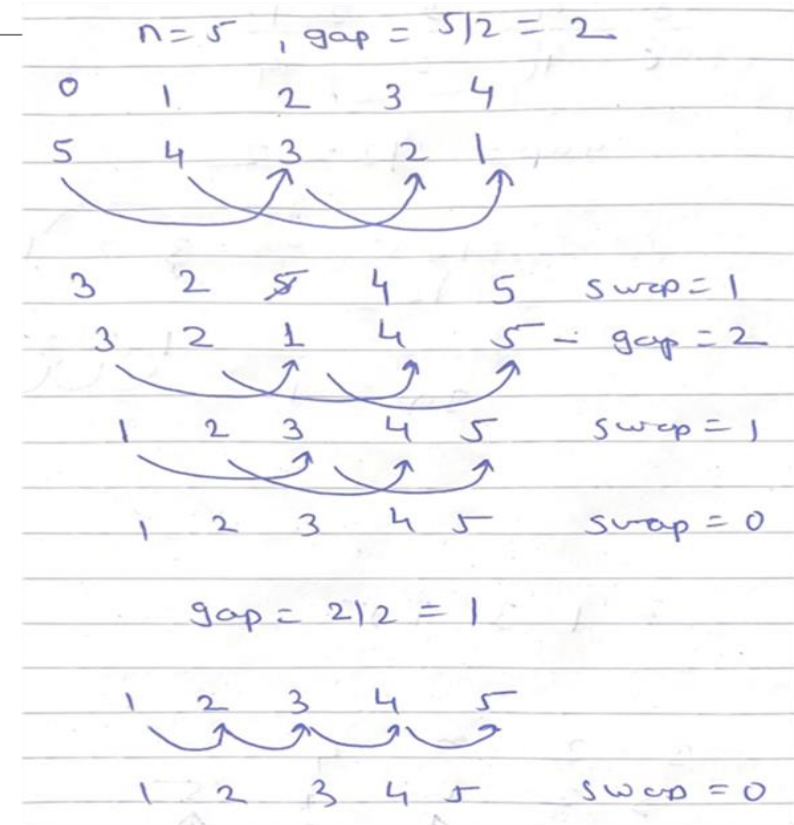 n = 5 , gap = 5/2 = 2
0 1 2 3 4
5 4 3 2 1
3 2 5 4 5 swap = 1
3 2 1 4 5 - gap = 2
1 2 3 4 5 swap = 1
1 2 3 4 5 swap = 0
gap = 2/2 = 1
1 2 3 4 5
1 2 3 4 5 swap = 0